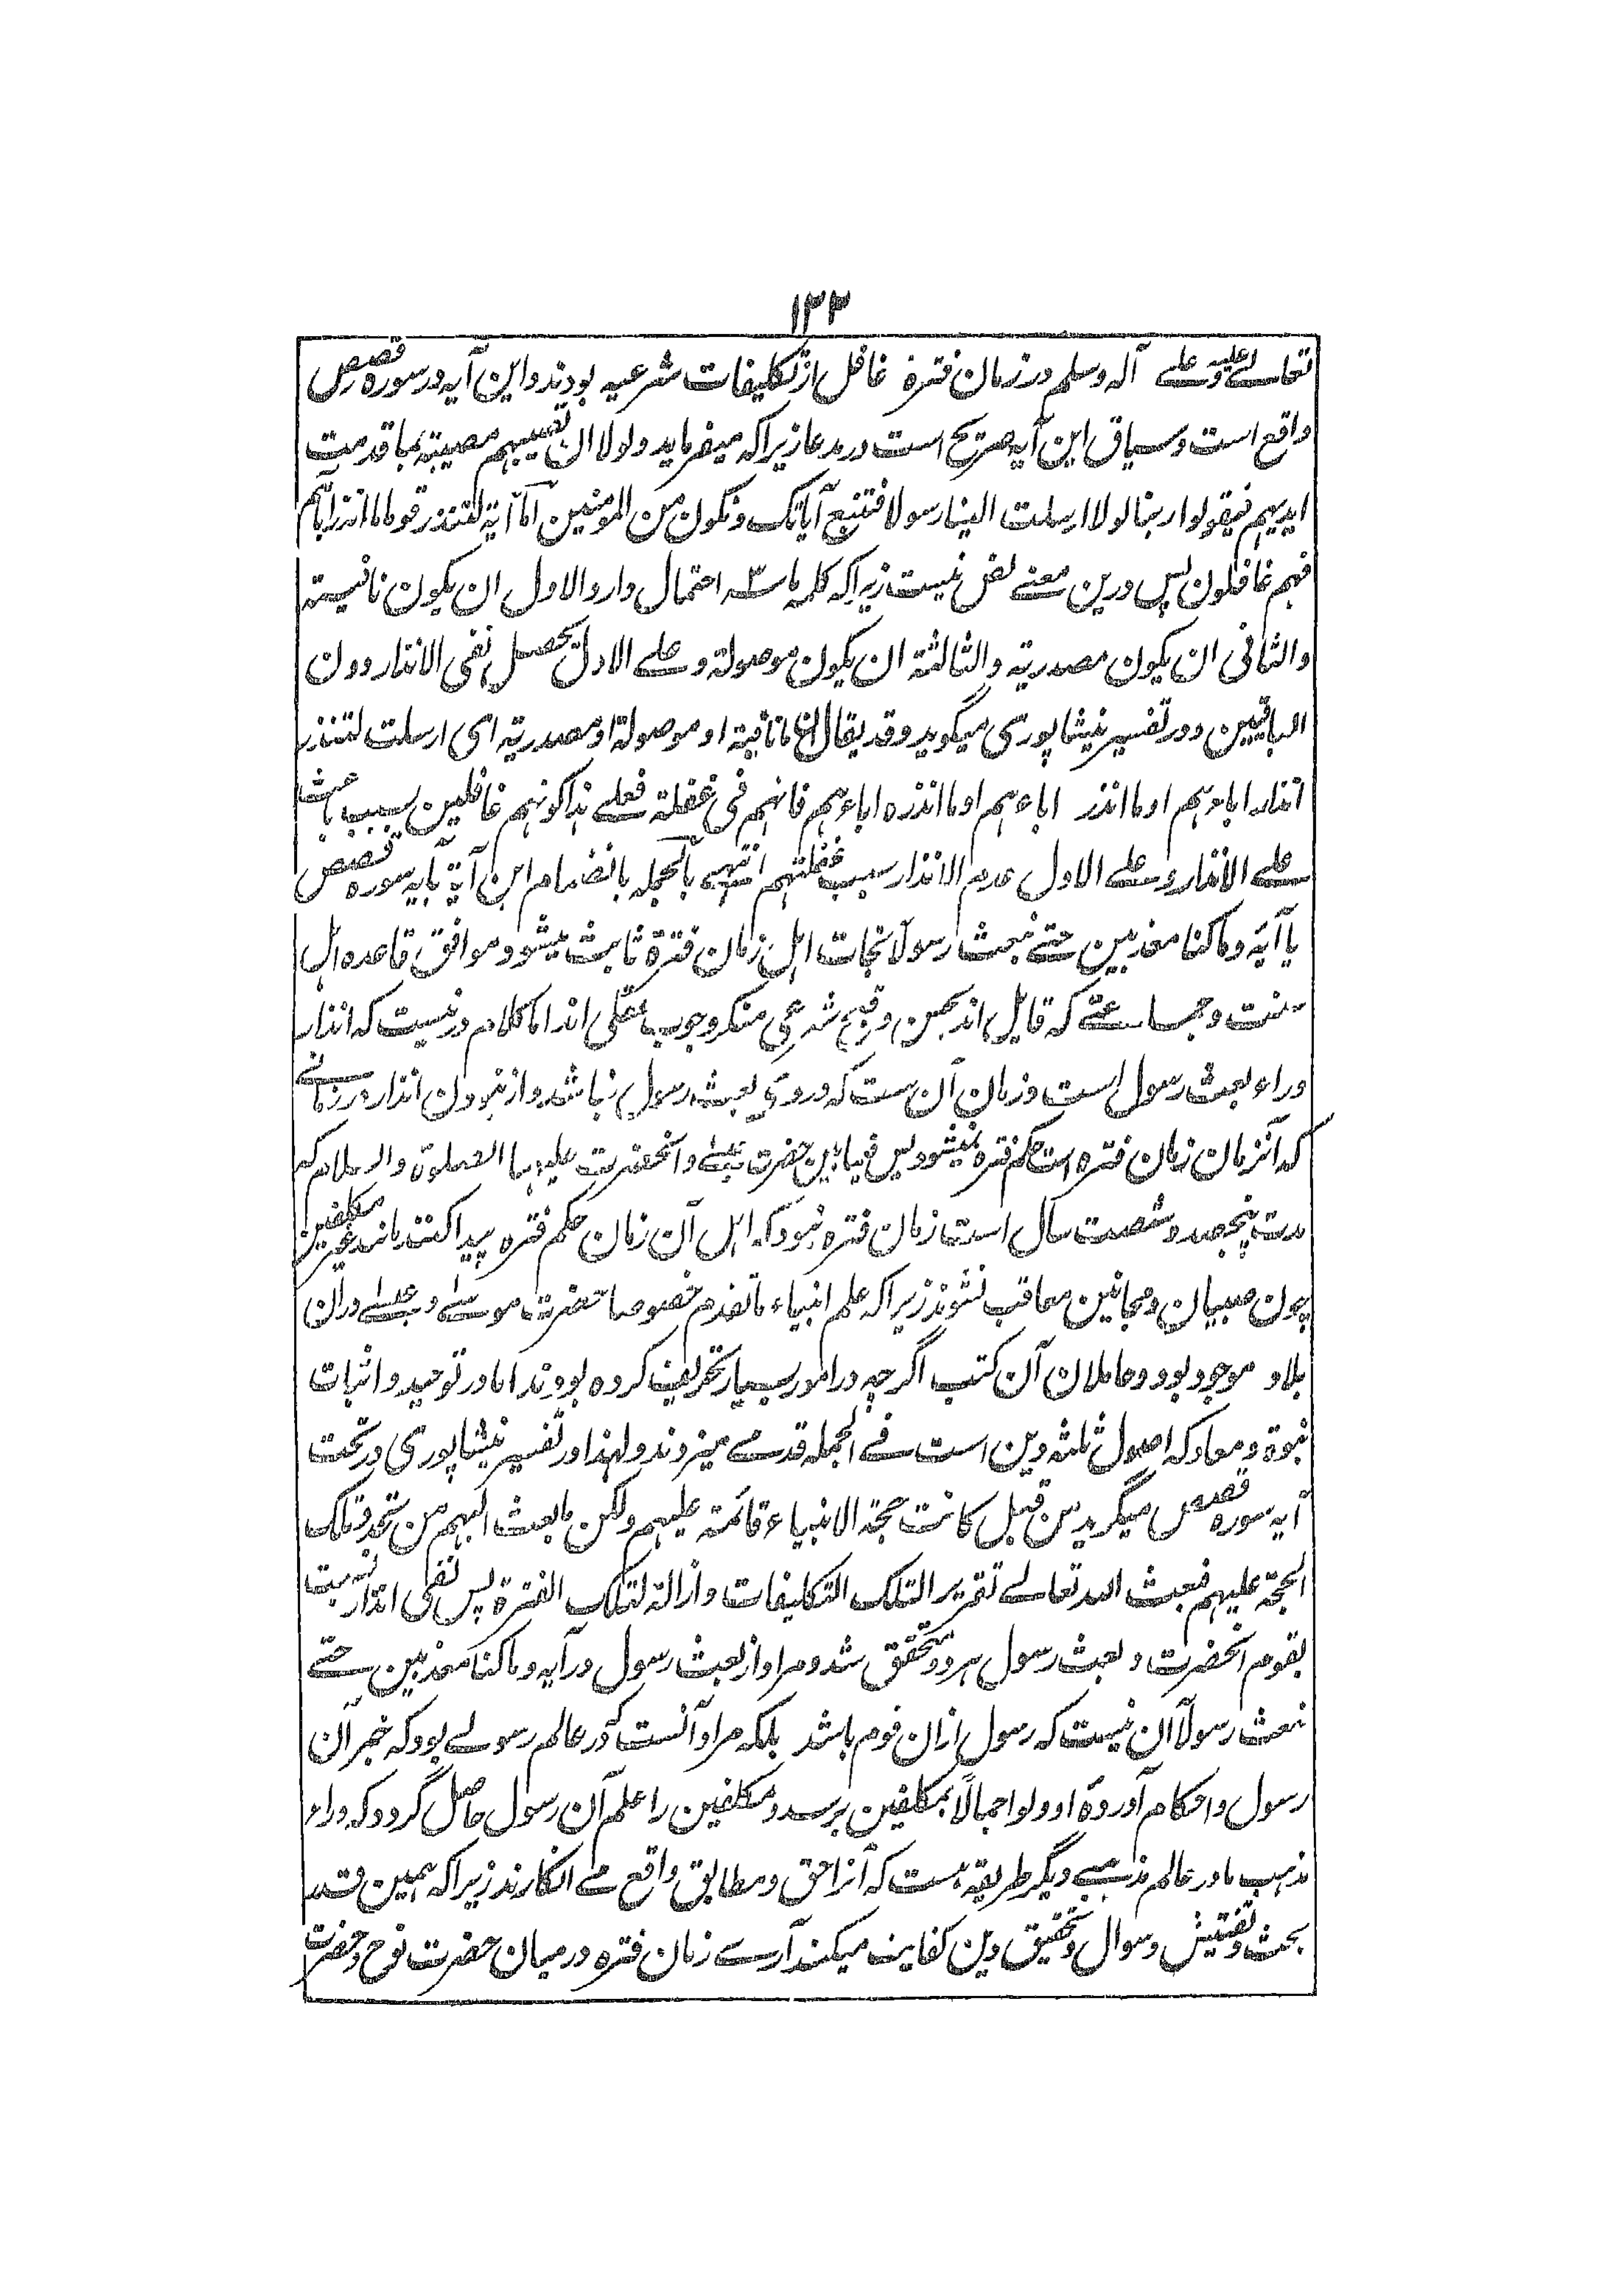 ۱۳۳
تعالے علیہ وعلے آلہ وسلم در زمان فترۃ غافل از تکلیفات شرعیہ بودند و این آیہ در سورہ قصص
واقع است و سیاق این آیہ صریح است در مدعا زیراکہ میفرماید ولولا ان تصیبہم مصیبۃ بما قدمت
ایدیہم فیقولوا ربنا لولا ارسلت الینا رسولا فنتبع آیاتک ونکون من المومنین اما آیۃ لتنذر قوما ما انذر آباؤہم
فہم غافلون پس درین معنے نص نیست زیراکہ کلمہ ما سہ احتمال دارد الاول ان یکون نافیتہ
والثانی ان یکون مصدریۃ والثالثۃ ان یکون موصولۃ وعلے الاول یحصل نفی الانذار دون
الباقیین و در تفسیر نیشاپوری میگوید وقد یقال ان ما نافیۃ او موصولۃ او مصدریۃ ای ارسلت لتنذر
انذار اباءہم او ما انذر اباءہم او ما انذرہ اباءہم فانہم فی غفلۃ فعلے ہذا کونہم غافلین بسبب باعث
علے الانذار وعلے الاول عدم الانذار سبب غفلتہم انتہے بالجملہ بانضمام این آیۃ بآیہ سورہ قصص
یا آیہ وما کنا معذبین حتے نبعث رسولا نجات اہل زمان فترۃ ثابت میشود و موافق قاعدہ اہل
سنت و جماعتے کہ قایل اند بحسن و قبح شرعی منکر وجوب عقلی اند اما کلام درنیست کہ انذار
وراء بعث رسول است و زمان آن ست کہ دروی بعث رسول نباشد و از نبودن انذار در زمانے
کہ آنزمان زمان فترہ است حکم فترہ نمیشود پس فیمابین حضرت عیسے و آنحضرت علیہما الصلوۃ والسلام کہ
مدت پنجصد و شصت سال است زمان فترہ نبود کہ اہل آن زمان حکم فترہ پیدا کنند مانند غیر مکلفین
چون صبیان و مجانین معاقب نشوند زیراکہ علم انبیاء ما تقدم خصوصا حضرت موسے و عیسے دران
بلاد موجود بود و حاملان آن کتب اگرچہ در امور بسیار تحریف کردہ بودند اما در توحید و اثبات
نبوۃ و معاد کہ اصول ثلثہ دین است فے الجملہ قدمے میزدند و لہذا در تفسیر نیشاپوری در تحت
آیہ سورہ قصص میگوید من قبل کانت حجۃ الانبیاء قائمۃ علیہم ولکن ما بعث الیہم من یجدد تلک
الحجۃ علیہم فبعث اللہ تعالے تقریر التلک التکلیفات وازالۃ لتلک الفترۃ پس نفی انذار نسبت
بقوم آنحضرت و بعث رسول ہر دو متحقق شد و مراد از بعث رسول در آیہ وما کنا معذبین حتے
نبعث رسولا آن نیست کہ رسول ازان قوم باشد بلکہ مراد آنست کہ در عالم رسولے بود کہ خبر آن
رسول و احکام آوردۂ او ولو اجمالاً بمکلفین برسد و مکلفین را علم آن رسول حاصل گردد کہ وراء
مذہب ما در عالم مذہبے دیگر طریقہ ہست کہ آنرا حق و مطابق واقع مے انکارند زیراکہ ہمین قدر
بحث و تفتیش و سوال و تحقیق دین کفایت میکند آرے زمان فترہ درمیان حضرت نوح و حضرت